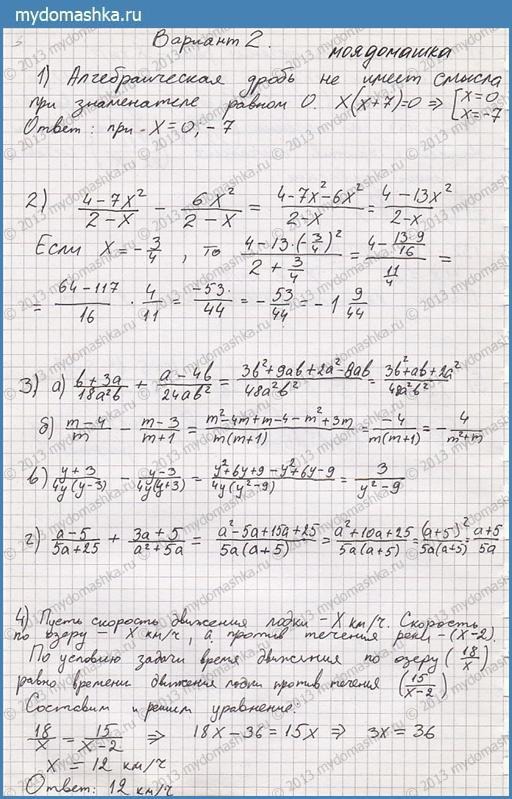 mydomashka.ru
Вариант 2.
моядомашка
1) Алгебраическая дробь не имеет смысла
при знаменателе равном 0. x(x+7)=0 ⇒ [x=0 x=-7
Ответ: при x=0; -7
2) (4-7x²)/(2-x) - (6x²)/(2-x) = (4-7x²-6x²)/(2-x) = (4-13x²)/(2-x)
Если x = -3/4, то (4-13·(-3/4)²)/(2+3/4) = (4-(13·9)/16)/(11/4) =
= (64-117)/16 · 4/11 = -53/44 = -53/44 = -1 9/44
3) а) (b+3a)/(18a²b) + (a-4b)/(24ab²) = (3b²+9ab+2a²-8ab)/(48a²b²) = (3b²+ab+2a²)/(48a²b²)
б) (m-4)/m - (m-3)/(m+1) = (m²-4m+m-4-m²+3m)/(m(m+1)) = -4/(m(m+1)) = -4/(m²+m)
в) (y+3)/(4y(y-3)) - (y-3)/(4y(y+3)) = (y²+6y+9-y²+6y-9)/(4y(y²-9)) = 3/(y²-9)
г) (a-5)/(5a+25) + (3a+5)/(a²+5a) = (a²-5a+15a+25)/(5a(a+5)) = (a²+10a+25)/(5a(a+5)) = (a+5)²/(5a(a+5)) = (a+5)/5a
4) Пусть скорость движения лодки - x км/ч. Скорость
по озеру - x км/ч, а против течения реки - (x-2).
По условию задачи время движения по озеру (18/x)
равно времени движения лодки против течения (15/(x-2))
Составим и решим уравнение:
18/x = 15/(x-2) ⇒ 18x-36=15x ⇒ 3x=36
x = 12 км/ч
Ответ: 12 км/ч
© 2013 mydomashka.ru